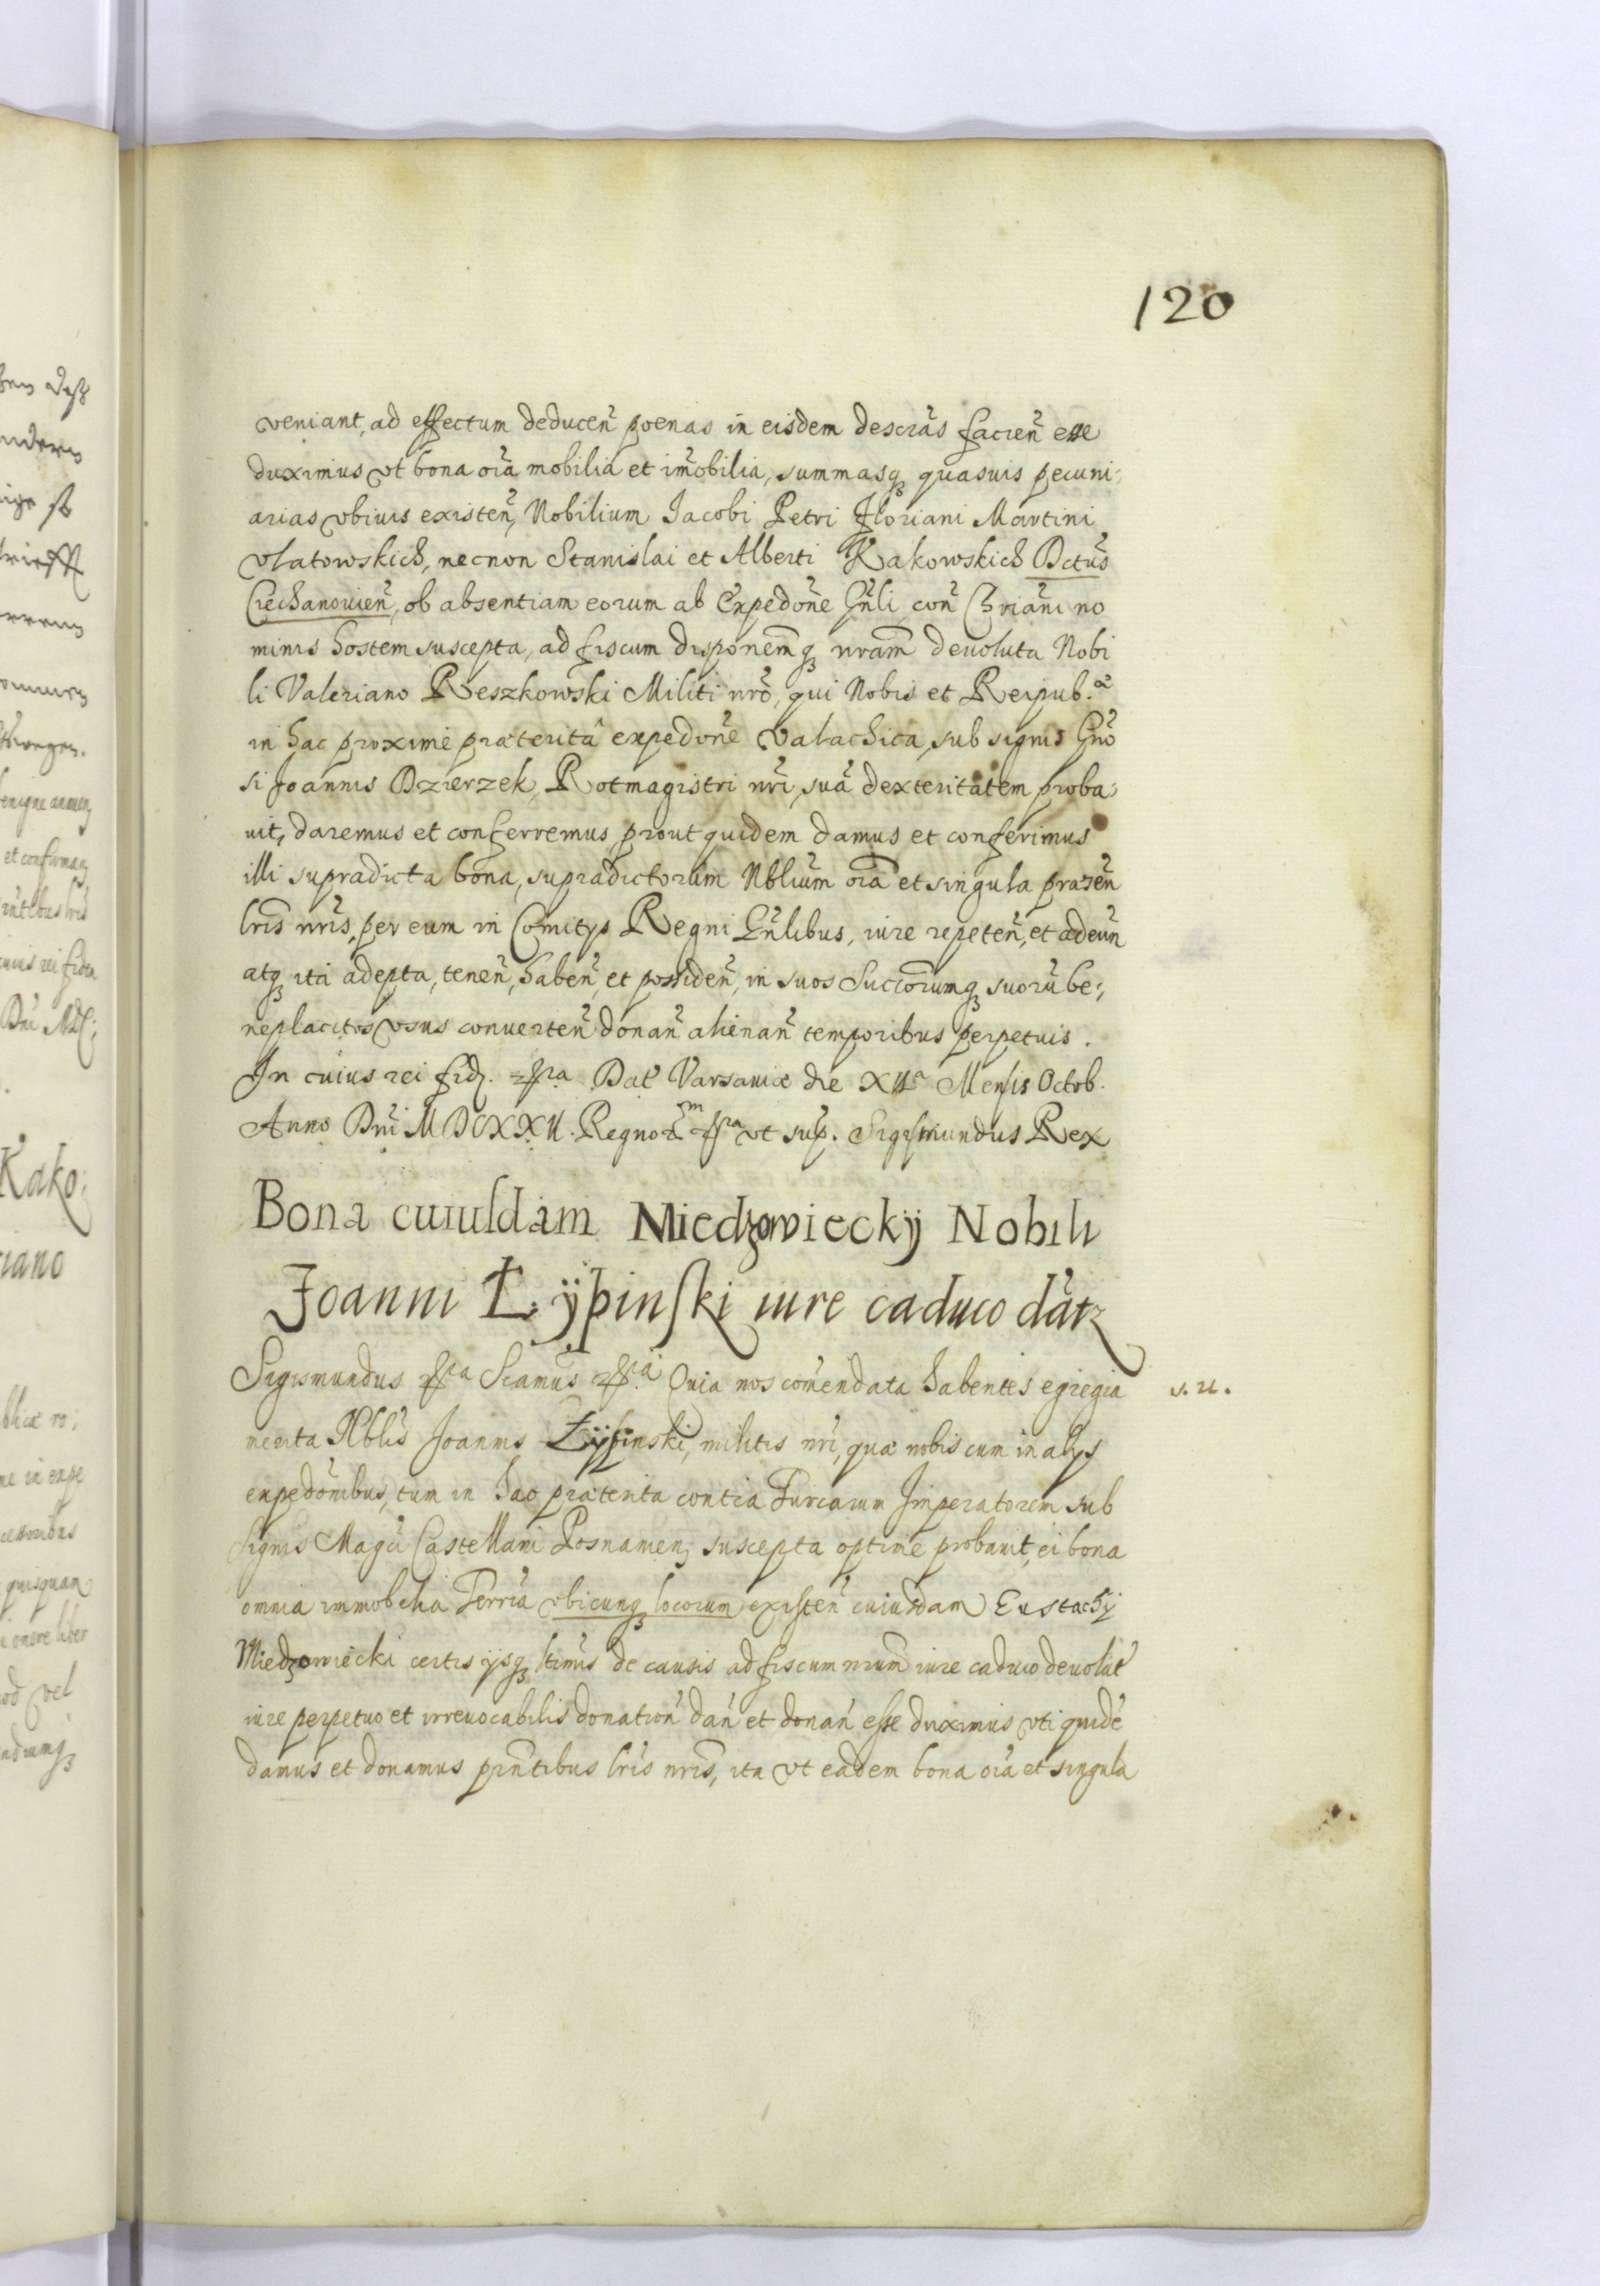 120
veniant, ad effectum deducen̄ poenas in eisdem descrās facien̄ esse
duximus vt bona oīa mobilia et im̄obilia, summasq́ quasuis pecuni:
arias vbiuis existen̄, Nobilium Iacobi Petri Floriani Martini
Vlatowskich, necnon Stanislai et Alberti Kakowskich Dctūs
Ciechanouien̄, ob absentiam eorum ab Expedōne Gn̄li con̄ Chr̄iani no
minis hostem suscepta, ad fiscum disponemq́ nram̄ deuoluta Nobi
li Valeriano Reszkowski Militi nrō, qui Nobis et Reipub.æ
in hac proxime præteritâ expedōne Valachica, sub signis Gn̄o
si Joannis Dzierzek, Rotmagistri nrī, suā dexteritatem proba:
uit, daremus et conferremus, prout quidem damus et conferimus
illi supradicta bona, supradictorum Nblīum oīa et singula præsen̄
lrīs nrīs, per eum in Comitys Regni Gn̄libus, iure repeten̄, et adeun̄
atq́ ita adepta, tenen̄, haben̄, et possiden̄, in suos Succorumq́ suorū be:,
neplacitos vsus conuerten̄ donan̄ alienan̄ temporibus perpetuis.
In cuius rei fid. ꝛpa Dat̄ Varsauiæ die XIIa Mensis Octob.
Anno Dnī MDCXXII. Regnorm ꝛpa vt sup. Sigismundus Rex
Bona cuiusdam Miedzowieckÿ Nobili
Joanni Łÿpinski iure caduco dātr
Sigismundus ꝛpa Sciamūs ꝛpa Quia nos com̄endata habentes egregia
v. u.
merita Nblīs Joannis Łÿpinski, militis nrī, quæ nobis cum in alÿs
expedōnibus, tum in hac præterita contra Turcarum Imperatorem sub
signis Magcī Castellani Posnanien, suscepta optime probauit, ei bona
omnia immobilia Terrīa vbicunq́ locorum existen̄ cuiusdam Eustachÿ
Miedzowiecki certis ÿsq́ ltimīs de causis ad fiscum nrum̄ iure caduco deuolut̄
iure perpetuo et irreuocabilis donation̄ dan̄ et donan̄ esse duximus vti quidē
damus et donamus pn̄tibus lrīs nrīs, ita vt eadem bona oīa et singula